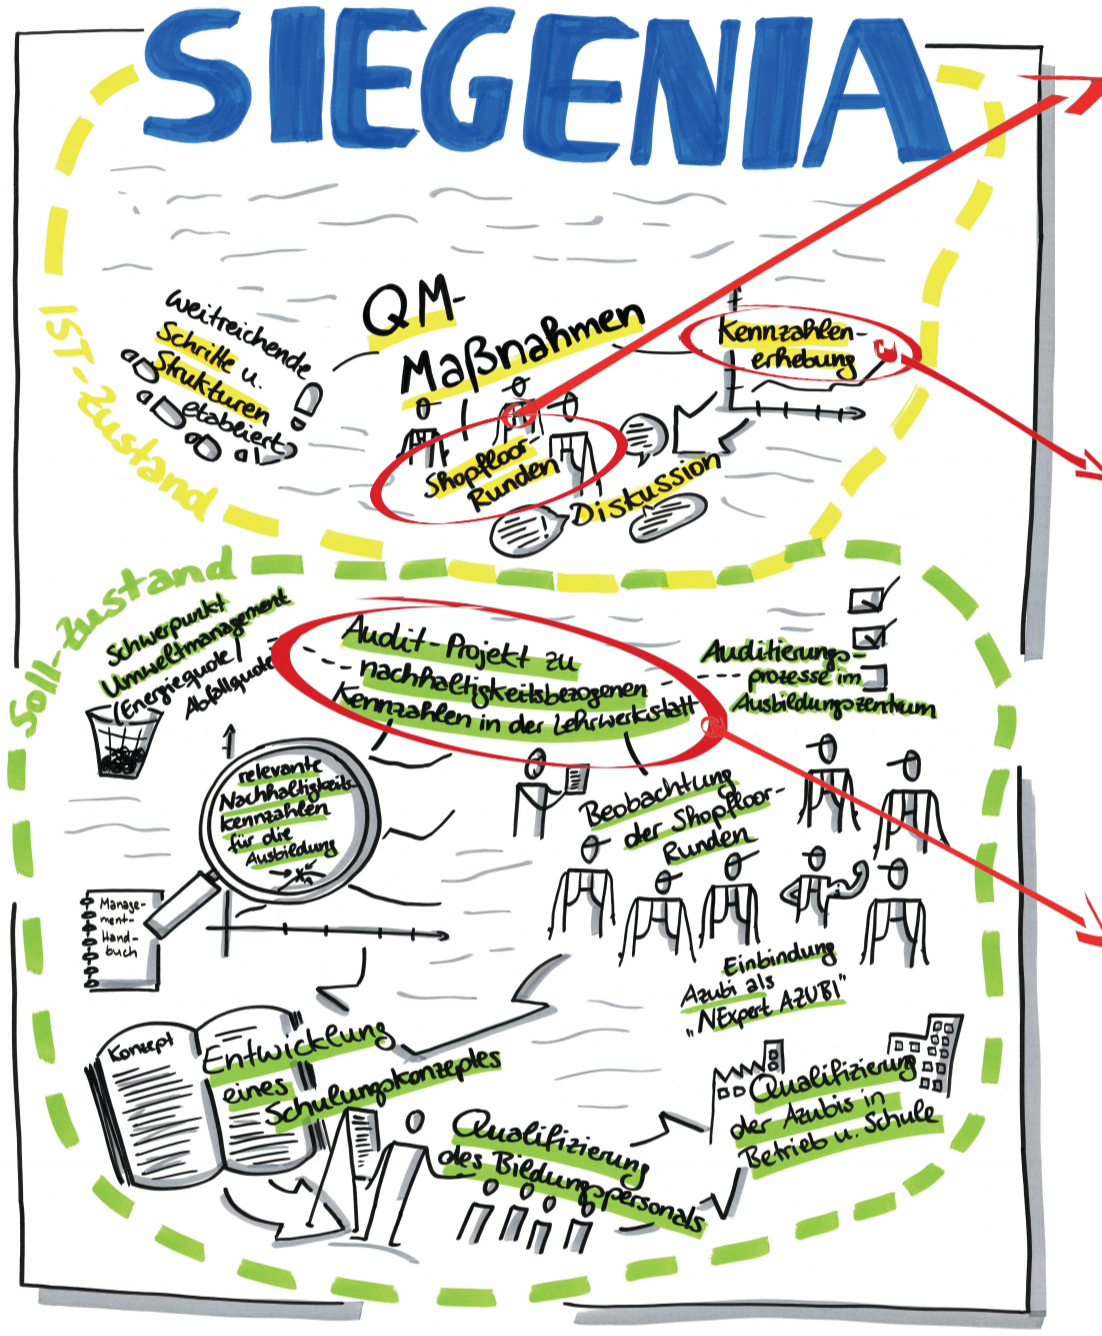 SIEGENIA
IST-Zustand
weitreichende
Schritte u.
Strukturen
etabliert
QM-
Maßnahmen
Kennzahlen-
erhebung
Shopfloor-
Runden
Diskussion
Soll-Zustand
Schwerpunkt
Umweltmanagement
(Energiequote/
Abfallquote
Audit-Projekt zu
nachhaltigkeitsbezogenen
Kennzahlen in der Lehrwerkstatt
Auditierungs-
prozesse im
Ausbildungszentrum
relevante
Nachhaltigkeits-
kennzahlen
für die
Ausbildung
Beobachtung
der Shopfloor-
Runden
Manage-
ment-
Hand-
buch
Einbindung
Azubi als
"NExpert AZUBI"
Konzept
Entwicklung
eines
Schulungskonzeptes
Qualifizierung
des Bildungspersonals
Qualifizierung
der Azubis in
Betrieb u. Schule